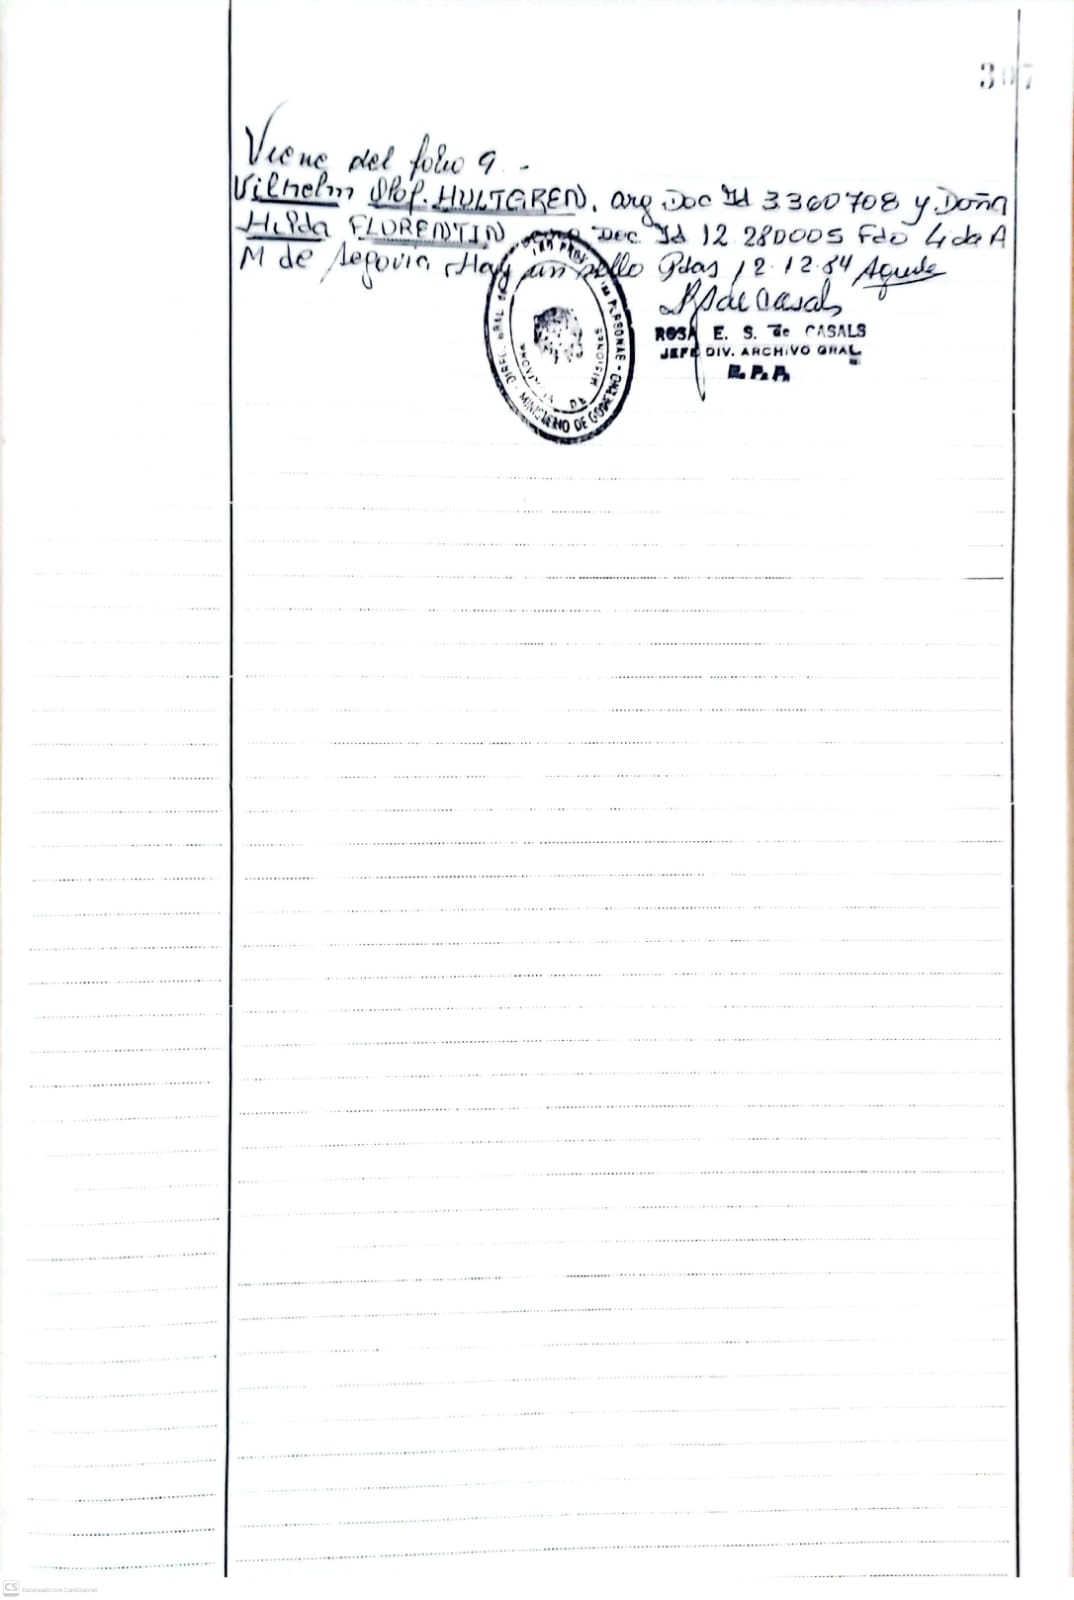 307
Viene del folio 9.-
Vilhelm Olof. HULTGREN, arg Doc Id 3.360708 y Doña
Hilda FLORENTIN Doc Id 12.280005 Fdo L de A
M de Segovia. Hay un sello Pdas 12.12.84
RSdeCasals
ROSA E. S. de CASALS
JEFE DIV. ARCHIVO GRAL
R. P. P.
DIREC. GRAL DE PERSONAS - MINISTERIO DE GOBIERNO -
PROVINCIA DE MISIONES
CS Escaneado con CamScanner